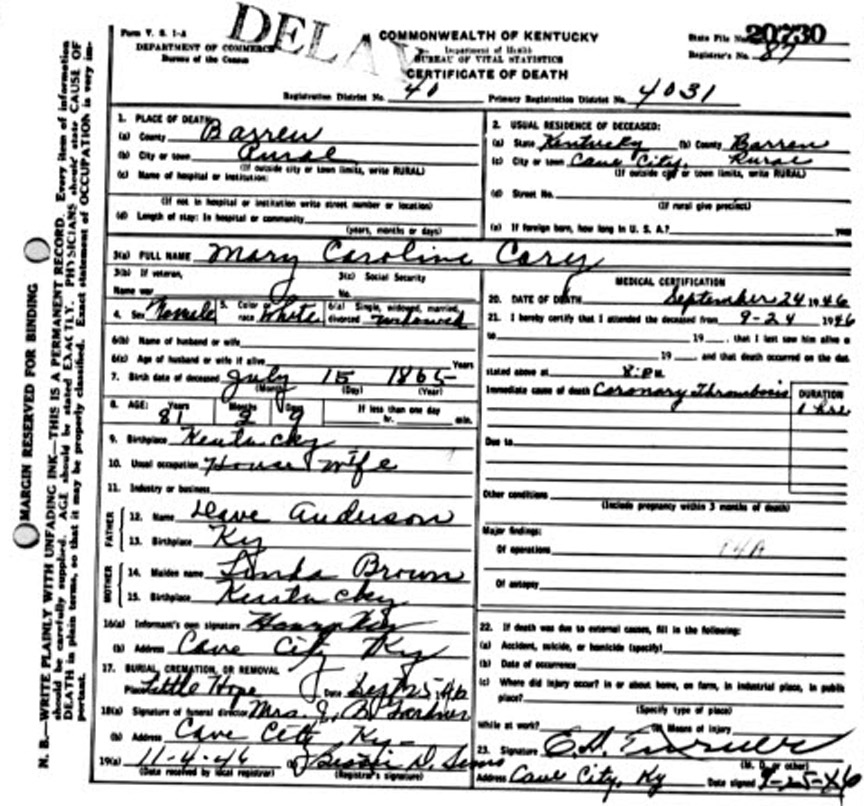 Form V. S. 1-A
DEPARTMENT OF COMMERCE
Bureau of the Census
DELAY
COMMONWEALTH OF KENTUCKY
Department of Health
BUREAU OF VITAL STATISTICS
CERTIFICATE OF DEATH
State File No. 20730
Registrar's No. 87
Registration District No. 40 Primary Registration District No. 4031
MARGIN RESERVED FOR BINDING
N. B.—WRITE PLAINLY WITH UNFADING INK—THIS IS A PERMANENT RECORD. Every item of information
should be carefully supplied. AGE should be stated EXACTLY. PHYSICIANS should state CAUSE OF
DEATH in plain terms, so that it may be properly classified. Exact statement of OCCUPATION is very im-
portant.
1. PLACE OF DEATH:
(a) County Barren
(b) City or town Rural
(If outside city or town limits, write RURAL)
(c) Name of hospital or institution:
(If not in hospital or institution write street number or location)
(d) Length of stay: In hospital or community
(years, months or days)
2. USUAL RESIDENCE OF DECEASED:
(a) State Kentucky (b) County Barren
(c) City or town Cave City, Rural
(If outside city or town limits, write RURAL)
(d) Street No.
(If rural give precinct)
(e) If foreign born, how long in U. S. A.? years
3(a) FULL NAME Mary Caroline Cary
3(b) If veteran, 3(c) Social Security
Name war No.
4. Sex Female 5. Color or race White 6(a) Single, widowed, married, divorced widowed
6(b) Name of husband or wife
6(c) Age of husband or wife if alive Years
7. Birth date of deceased July 15 1865
(Month) (Day) (Year)
8. AGE: Years Months Days If less than one day
81 2 9 hr. min.
9. Birthplace Kentucky
10. Usual occupation House wife
11. Industry or business
FATHER
12. Name Dave Anderson
13. Birthplace Ky
MOTHER
14. Maiden name Linda Brown
15. Birthplace Kentucky
16(a) Informant's own signature
(b) Address Cave City Ky
17. BURIAL, CREMATION, OR REMOVAL
Place Little Hope Date Sept 25 1946
18(a) Signature of funeral director Mrs. J. B. Gardner
(b) Address Cave City Ky-
19(a) 11-4-46 (b) D.
(Date received by local registrar) (Registrar's signature)
MEDICAL CERTIFICATION
20. DATE OF DEATH September 24 1946
21. I hereby certify that I attended the deceased from 9-24 1946
to 19 , that I last saw him alive o
19 , and that death occurred on the dat
stated above at 8:PM.
Immediate cause of death Coronary Thrombosis
DURATION
1 hr
Due to
Other conditions
(Include pregnancy within 3 months of death)
Major findings:
Of operations 94A
Of autopsy
22. If death was due to external causes, fill in the following:
(a) Accident, suicide, or homicide (specify)
(b) Date of occurrence
(c) Where did injury occur? In or about home, on farm, in industrial place, in public
place?
(Specify type of place)
While at work? (e) Means of injury
23. Signature E.D. Turner
(M. D. or other)
Address Cave City, Ky Date signed 9-25-46